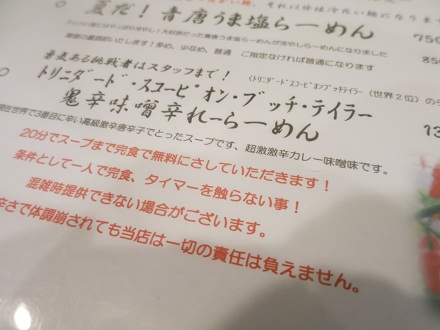 夏だ！青唐うま塩らーめん
750
勇気ある挑戦者はスタッフまで！
トリニダード・スコーピオン・ブッチ・テイラー
(ﾄﾘﾆﾀﾞｰﾄﾞｽｺｰﾋﾟｵﾝﾌﾞｯﾁﾃｲﾗｰ (世界2位)の
鬼辛味噌辛れーらーめん
現在世界で3番目に辛い高級激辛唐辛子でとったスープです、超激激辛カレー味噌味です。
20分でスープまで完食で無料にさしていただきます！
条件として一人で完食、タイマーを触らない事！
混雑時提供できない場合がございます。
辛さで体調崩されても当店は一切の責任は負えません。